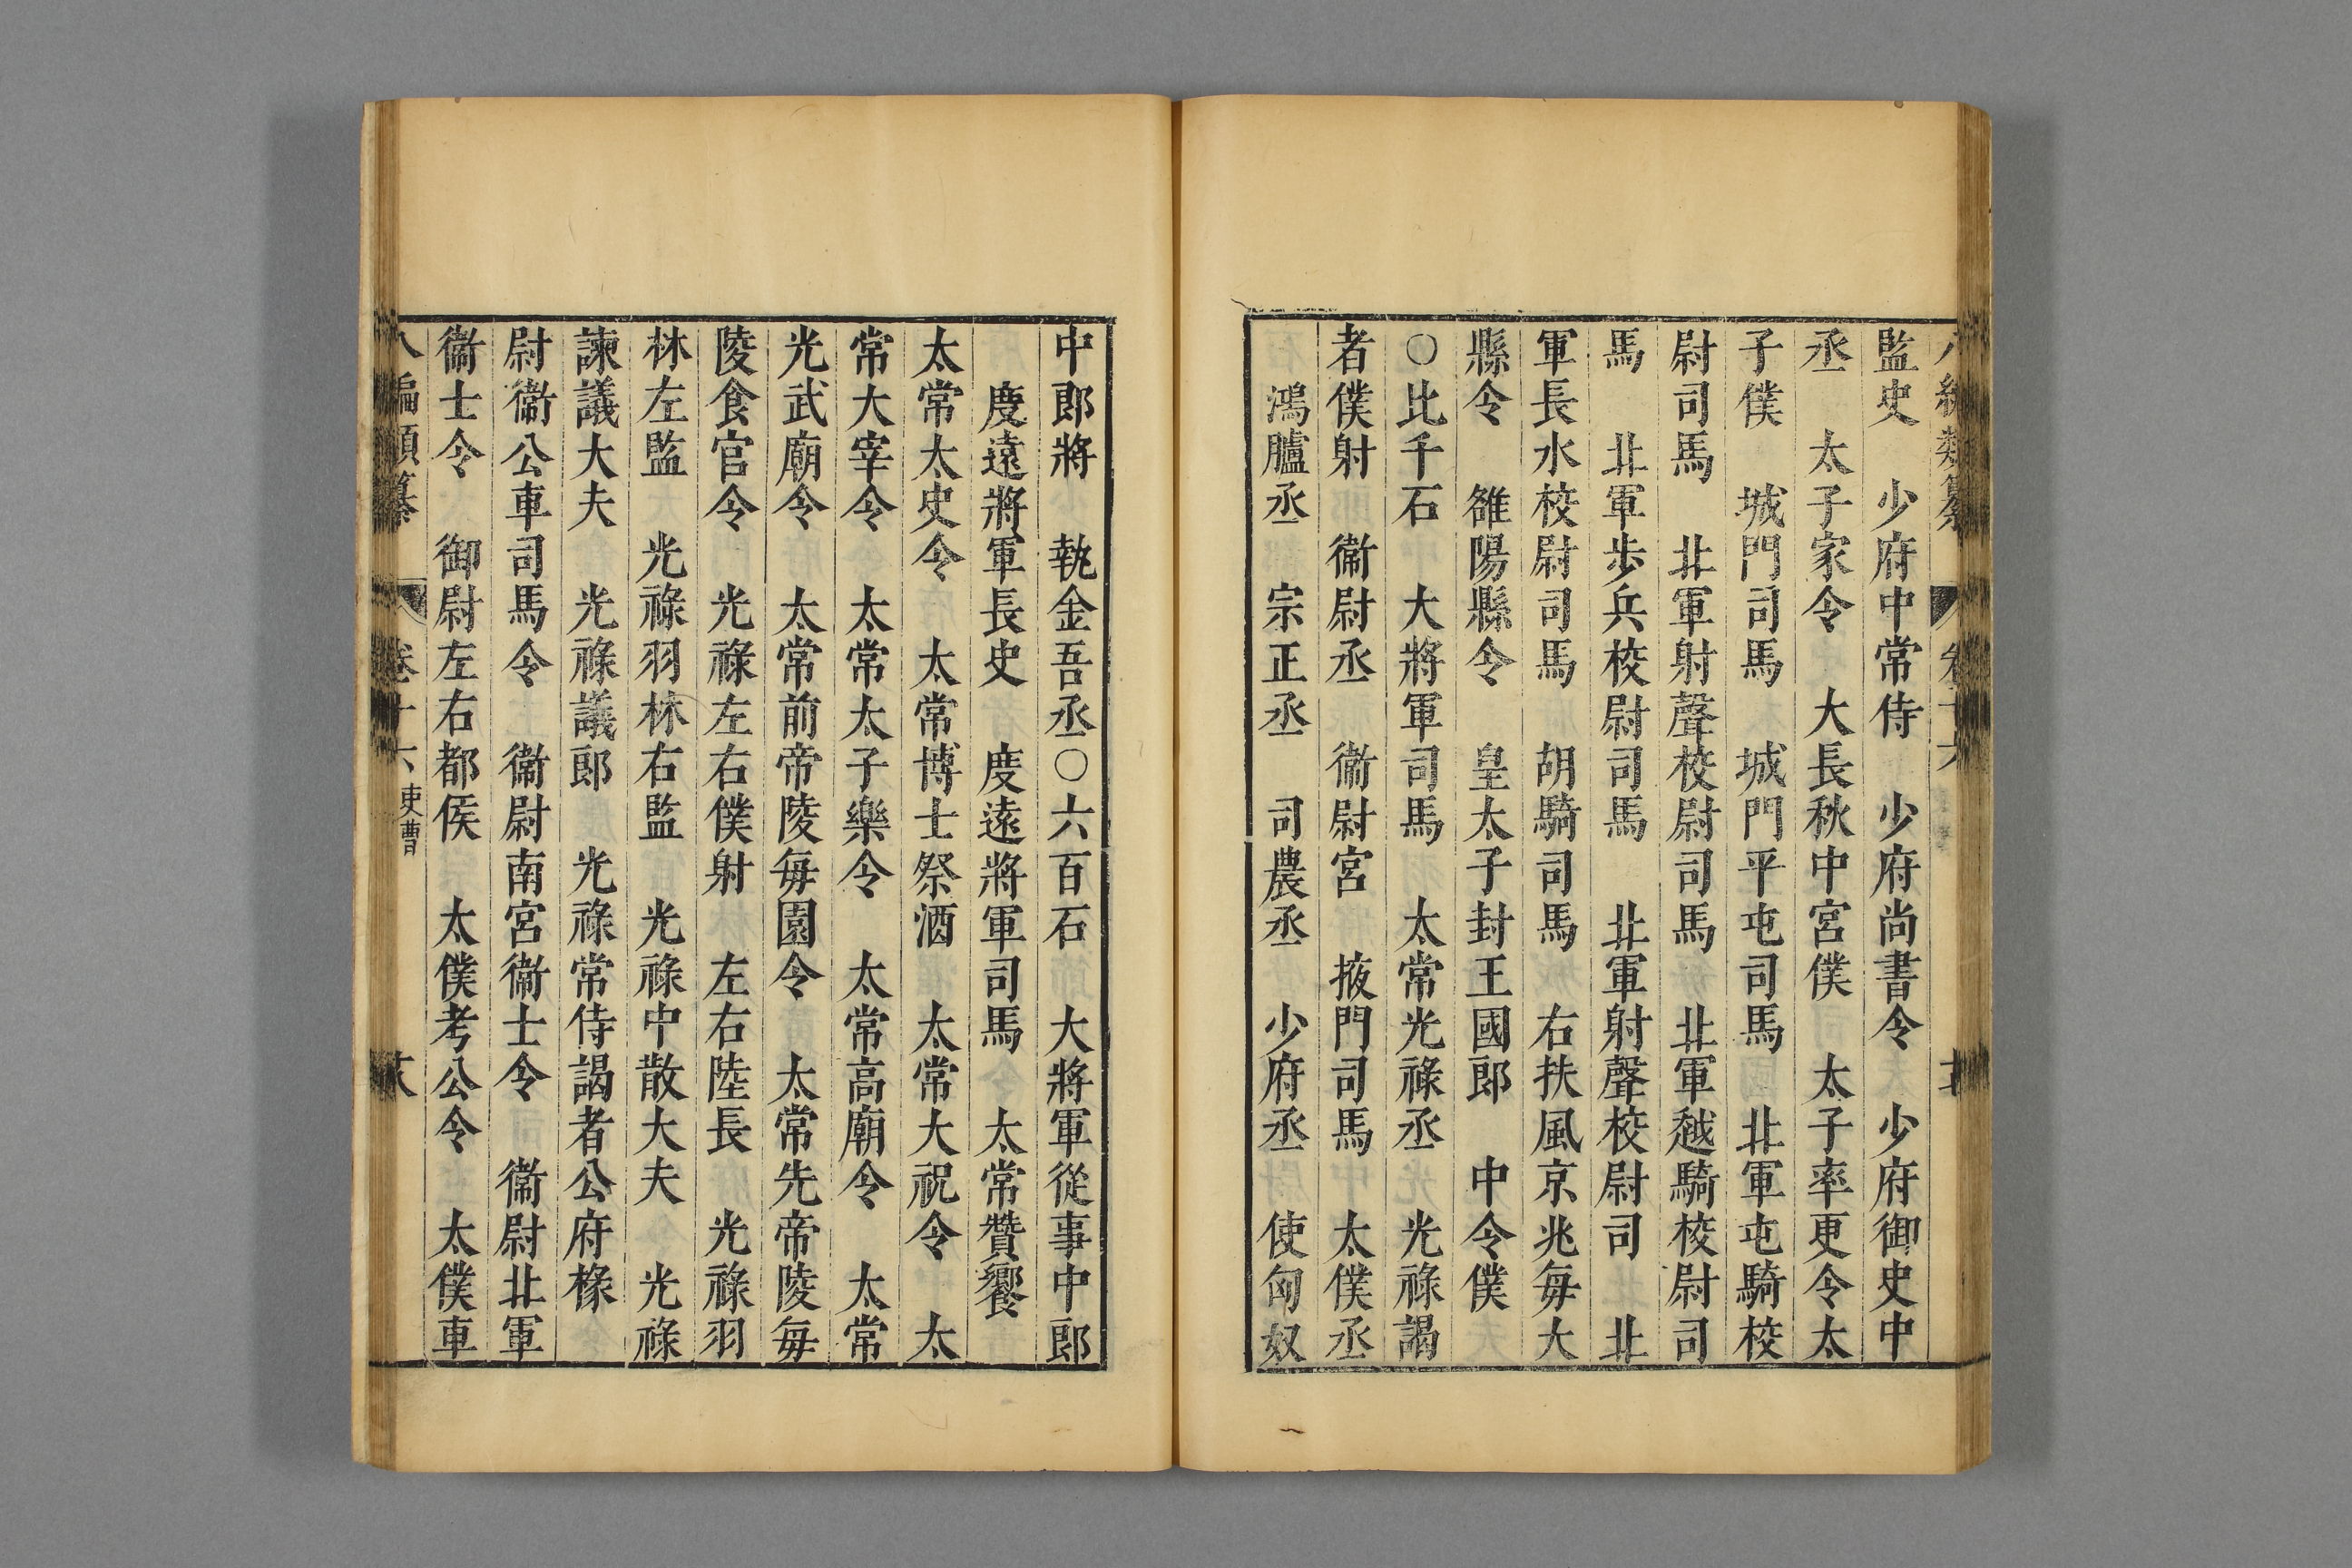 監史　少府中常侍　少府尚書令　少府御史中
丞　太子家令　大長秋中宮僕　太子率更令太
子僕　城門司馬　城門平屯司馬　北軍屯騎校
尉司馬　北軍射聲校尉司馬　北軍越騎校尉司
馬　北軍步兵校尉司馬　北軍射聲校尉司　北
軍長水校尉司馬　胡騎司馬　右扶風京兆每大
縣令　雒陽縣令　皇太子封王國郎　中令僕
○比千石　大將軍司馬　太常光祿丞　光祿謁
者僕射　衞尉丞　衞尉宮　掖門司馬　太僕丞
鴻臚丞　宗正丞　司農丞　少府丞　使匈奴
中郎將　執金吾丞○六百石　大將軍從事中郎
度遠將軍長史　度遠將軍司馬　太常贊饗
太常太史令　太常博士祭酒　太常大祝令　太
常大宰令　太常太子樂令　太常高廟令　太常
光武廟令　太常前帝陵每園令　太常先帝陵每
陵食官令　光祿左右僕射　左右陸長　光祿羽
林左監　光祿羽林右監　光祿中散大夫　光祿
諫議大夫　光祿議郎　光祿常侍謁者公府掾
尉衞公車司馬令　衞尉南宮衞士令　衞尉北軍
衞士令　御尉左右都侯　太僕考公令　太僕車
八編類纂　卷十六　吏曹